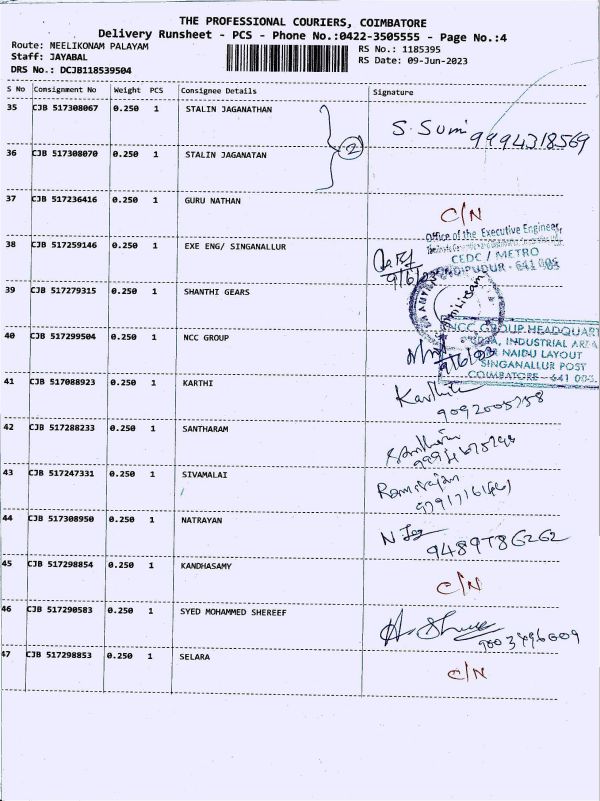 THE PROFESSIONAL COURIERS, COIMBATORE
Delivery Runsheet - PCS - Phone No.:0422-3505555 - Page No.:4
Route: NEELIKONAM PALAYAM
RS No.: 1185395
Staff: JAYABAL
RS Date: 09-Jun-2023
DRS No.: DCJB118539504
S No Consignment No Weight PCS Consignee Details Signature
35 CJB 517308067 0.250 1 STALIN JAGANATHAN
S. Sumi 9994318569
2
36 CJB 517308070 0.250 1 STALIN JAGANATAN
37 CJB 517236416 0.250 1 GURU NATHAN
C/N
Office of the Executive Engineer
38 CJB 517259146 0.250 1 EXE ENG/ SINGANULLUR
CEDC / METRO
9/6/23
39 CJB 517279315 0.250 1 SHANTHI GEARS
NCC GROUP HEADQUART
40 CJB 517299504 0.250 1 NCC GROUP
INDUSTRIAL AREA
9/6/23
NAIDU LAYOUT
SINGANALLUR POST
COIMBATORE - 641 005.
41 CJB 517088923 0.250 1 KARTHI
9092005758
42 CJB 517288233 0.250 1 SANTHARAM
43 CJB 517247331 0.250 1 SIVAMALAI
44 CJB 517308950 0.250 1 NATRAYAN
9489786262
45 CJB 517298854 0.250 1 KANDHASAMY
C/N
46 CJB 517290583 0.250 1 SYED MOHAMMED SHEREEF
9003496609
47 CJB 517298853 0.250 1 SELARA
C/N